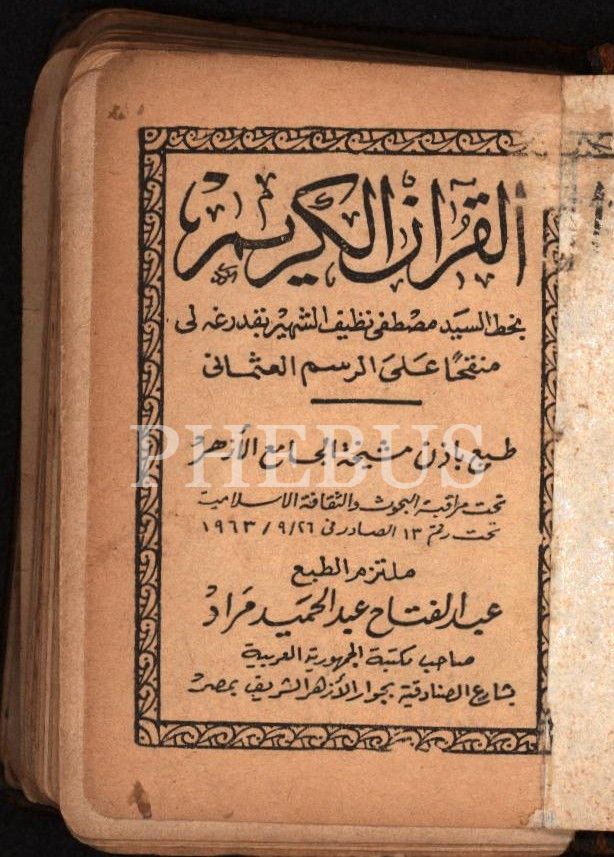 القرآن الكريم
بخط السيد مصطفى نظيف الشهير بقدرغه لى
منقحًا على الرسم العثمانى
طبع بإذن مشيخة الجامع الأزهر
PHEBUS
تحت مراقبة البحوث والثقافة الاسلامية
تحت رقم ١٣ الصادر فى ٢٦/ ٩/ ١٩٦٣
ملتزم الطبع
عبد الفتاح عبد الحميد مراد
صاحب مكتبة الجمهورية العربية
بشارع الصنادقية بجوار الأزهر الشريف بمصر